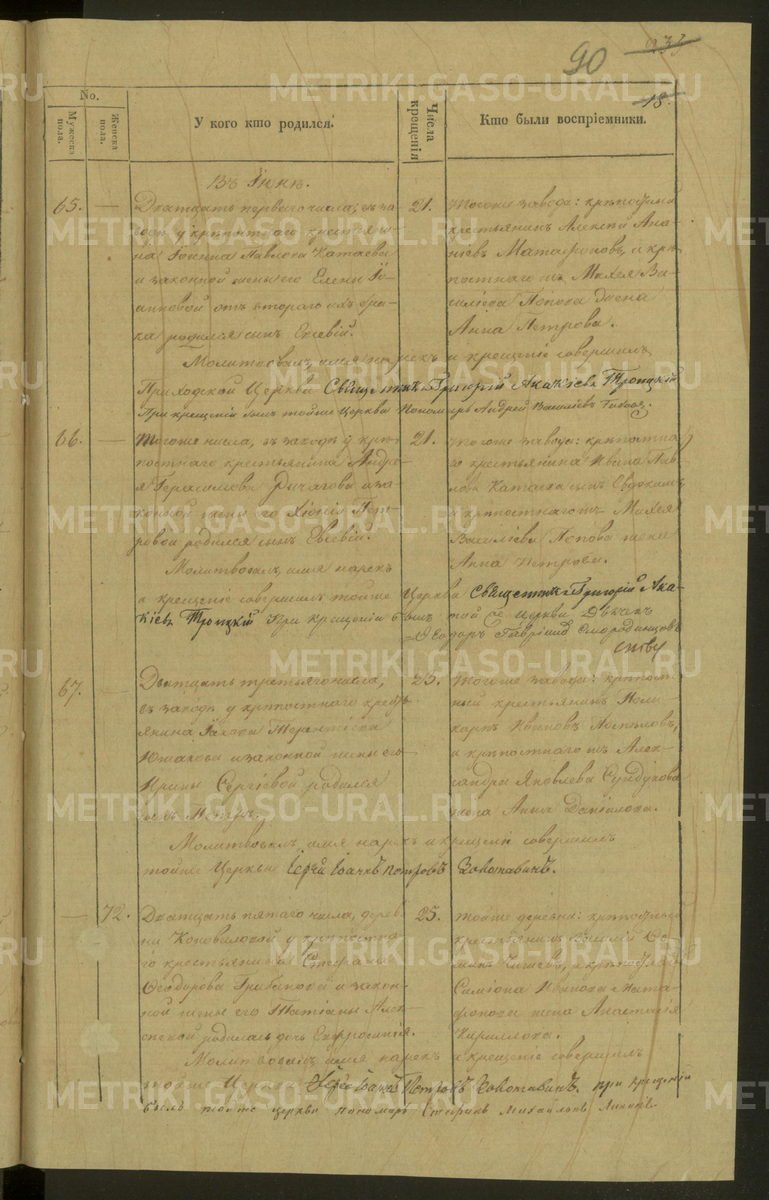 90
18.
No.
Мужеска пола.
Женска пола.
У кого кто родился.
Числа крещенія
Кто были воспріемники.
Въ Іюнѣ.
65. — Дватцать перваго числа, въ за-
водѣ у крѣпостнаго крестья-
нина Іоанна Павлова Катаева
и законной жены его Елены Іо-
анновой отъ втораго ихъ бра-
ка родился сынъ Евсевій.
21. Тогоже завода: крѣпостный
крестьянинъ Алексѣй Ана-
ніевъ Матафоновъ, и крѣ-
постнаго жъ Мокея Ва-
силіева Попова жена
Анна Петрова.
Молитвовалъ, имя нарекъ и крещеніе совершилъ
Приходской Церкви Священникъ Григорій Акакіевъ Троицкій
При крещеніи былъ тойже Церкви Пономарь Андрей Василіевъ
66. — Тогоже числа, въ заводѣ у крѣ-
постнаго крестьянина Андре-
я Герасимова Рычагова и за-
конной жены его Хіоніи Пет-
ровой родился сынъ Евсевій.
21. Тогоже завода: крѣпостна-
го крестьянина Ивана Пав-
лова Катаева сынъ Евдокимъ
и крѣпостнаго жъ Мокея
Василіева Попова жена
Анна Петрова.
Молитвовалъ, имя нарекъ
и крещеніе совершилъ тойже Церкви Священникъ Григорій Ака-
кіевъ Троицкій При крещеніи былъ той же Церкви Дьячекъ
Ѳеодоръ Гавріиловъ Смородинцовъ
67. — Дватцать третьяго числа,
въ заводѣ у крѣпостнаго кресть-
янина Іакова Терентіева
Южакова и законной жены его
Ирины Сергіевой родился
сынъ Петръ.
25. Тогоже завода: крѣпост-
ный крестьянинъ Поли-
карпъ Ивановъ Поспѣловъ,
и крѣпостнаго жъ Алек-
сандра Яковлева Сундукова
жена Анна Даніилова.
Молитвовалъ, имя нарекъ и крещеніе совершилъ
тойже Церкви Іерей Іоаннъ Петровъ Золотавинъ.
— 72. Дватцать пятаго числа, дерев-
ни Коноваловой у крѣпостна-
го крестьянина Стефана
Ѳеодорова и закон-
ной жены его Татіаны Алек-
сѣевой родилась дочь Евфросинія.
25. Тойже деревни: крѣпостной
крестьянинъ Василій
и крѣпостнаго
Симіона Иванова Мата-
фонова жена Анастасія
Кириллова.
Молитвовалъ имя нарекъ и крещеніе совершилъ
тойже Церкви Іерей Іоаннъ Петровъ Золотавинъ. при крещеніи
былъ тойже церкви пономарь Михайловъ
METRIKI.GASO-URAL.RU